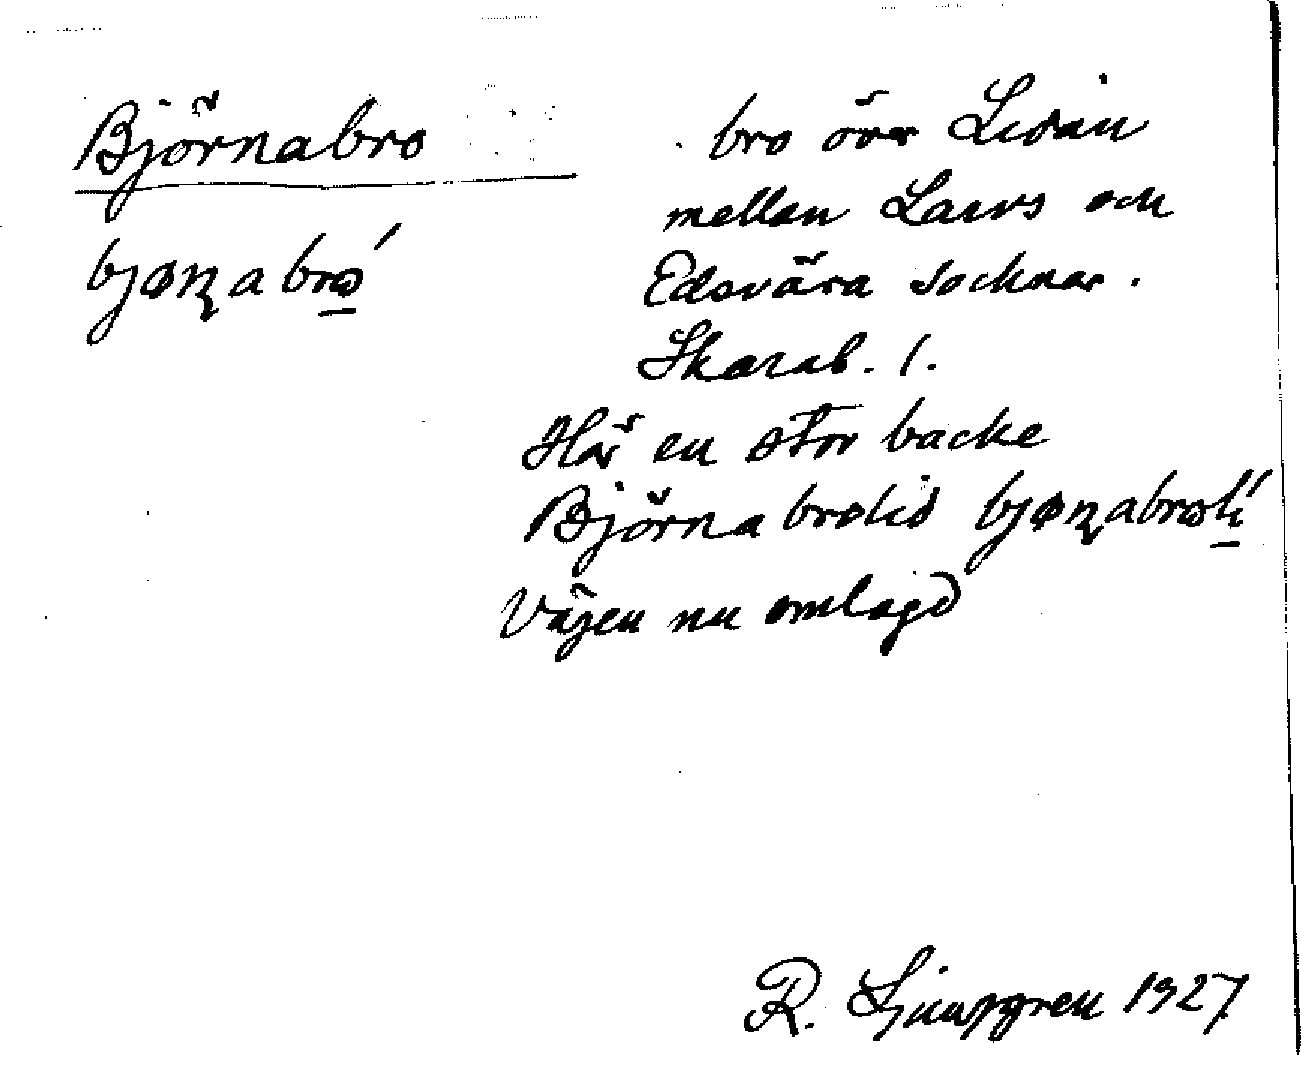 Björnabro
bjøɳabrꙍ́
bro över Lidan
mellan Larvs och
Edsvära socknar.
Skarab. l.
Här en stor backe
Björnabrolid bjøɳabrꙍlí
Vägen nu omlagd
R. Ljunggren 1927